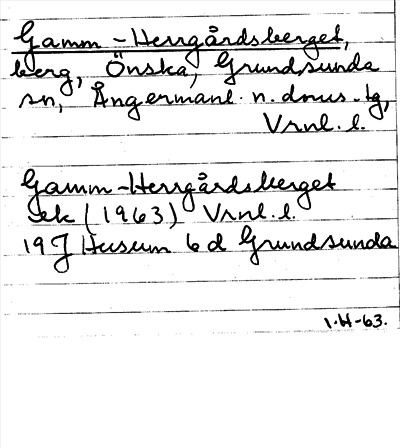 Gamm-Herrgårdsberget,
berg, Önska, Grundsunda
sn, Ångermanl. n. dnus. tg,
Vrnl. l.
Gamm-Herrgårdsberget
ek (1963) Vrnl. l.
19J Husum 6d Grundsunda
1.H-63.